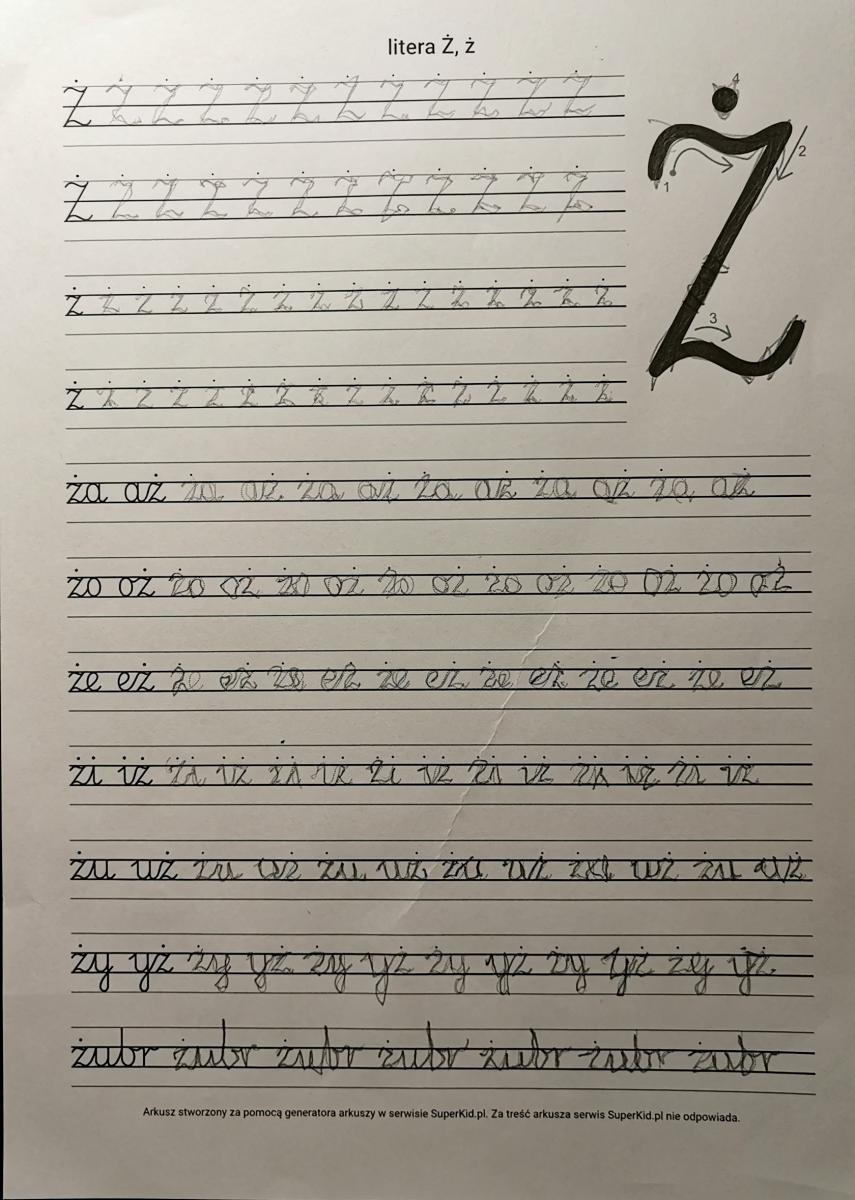 litera Ż, ż
4
Ż Ż Ż Ż Ż Ż Ż Ż Ż Ż Ż Ż
1 2
Ż Ż Ż Ż Ż Ż Ż Ż Ż Ż Ż Ż
ż ż ż ż ż ż ż ż ż ż ż ż ż ż ż ż
3
ż ż ż ż ż ż ż ż ż ż ż ż ż ż ż ż
Ż
ża aż ża aż ża aż ża aż ża aż ża aż
żo oż żo oż żo oż żo oż żo oż żo oż żo oż
że eż że eż że eż że eż że eż że eż że eż
żi iż żi iż żi iż żi iż żi iż żi iż żi iż
żu uż żu uż żu uż żu uż żu uż żu uż
ży yż ży yż ży yż ży yż ży yż ży yż
żubr żubr żubr żubr żubr żubr żubr
Arkusz stworzony za pomocą generatora arkuszy w serwisie SuperKid.pl. Za treść arkusza serwis SuperKid.pl nie odpowiada.